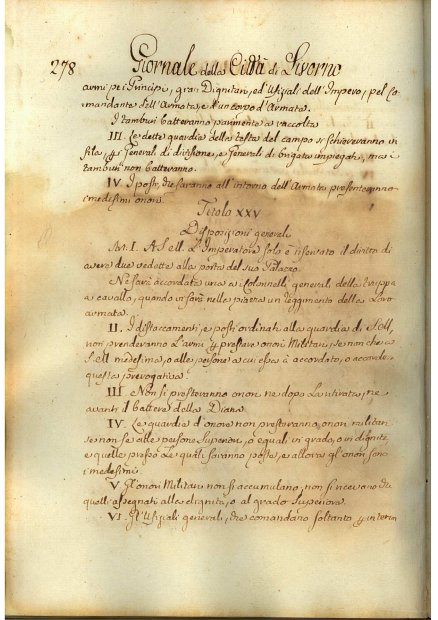 278 Giornale della Città di Livorno
armi pei Principi, gran Dignitari, ed Ufiziali dell'Impero, pel Co=
mandante dell'Armata, e d'un corpo d'Armata.
I tamburi batteranno parimente a raccolta
III. Le dette guardie della testa del campo si schiereranno in
fila, pei Generali di divisione, e Generali di brigata impiegati, ma i
tamburi non batteranno.
IV. I posti, che saranno all'intorno dell'Armata presenteranno
i medesimi onori.
Titolo XXV
Disposizioni generali
Art. I. A S. e R. L'Imperatore solo è riservato il diritto di
avere due vedette alla porta del suo Palazzo.
Ne sarà accordata una a i Colonnelli generali della truppa
a cavallo, quando vi sarà nella piazza un reggimento della loro
armata.
II. I distaccamenti, e posti ordinati alla guardia di S. M.,
non prenderanno l'armi per prestare onori Militari, se non che a
S. M. medesima, o alle persone a cui essa à accordato, o accorderà
questa prerogativa.
III. Non si presteranno onori nè dopo la ritirata, nè
avanti il battere della Diana.
IV. Le guardie d'onore non presteranno, onori militari
se non se alle persone Superiori, o eguali in grado, o in dignità
a quelle presso Le quali saranno poste, e allora gl'onori sono
i medesimi
V. Gl'onori Militari non si accumulano, non si ricevano che
quelli assegnati alla dignità, o al grado Superiore.
VI. Gl'Ufiziali generali, che comandano soltanto per interim